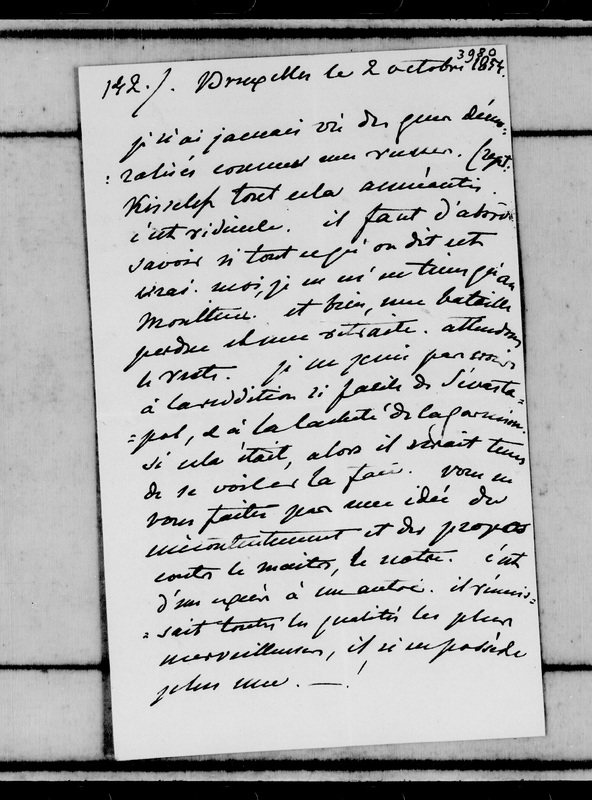 3980
142./. Bruxelles le 2 octobre 1854.
je n'ai jamais vu des gens démo-
:ralisés comme mes russes.
Kisseleff tout cela anéantis.
c'est ridicule. il faut d'abord
savoir si tout ce qu'on dit est
vrai. moi, je ne m'en tiens qu'au
Moniteur. et bien, une bataille
perdue et une retraite. attendons
le reste. je ne puis pas croire
à la reddition si facile de Sévasto=
=pol, et à la lacheté de la garnison.
si cela était, alors il serait tems
de se voiler la face. vous ne
vous faites pas une idée du
mécontentement et des propos
contre le maitre, le notre. c'est
d'un excès à un autre. il réunis=
=sait toutes les qualités les plus
merveilleuses, il n'en possède
plus une. —!